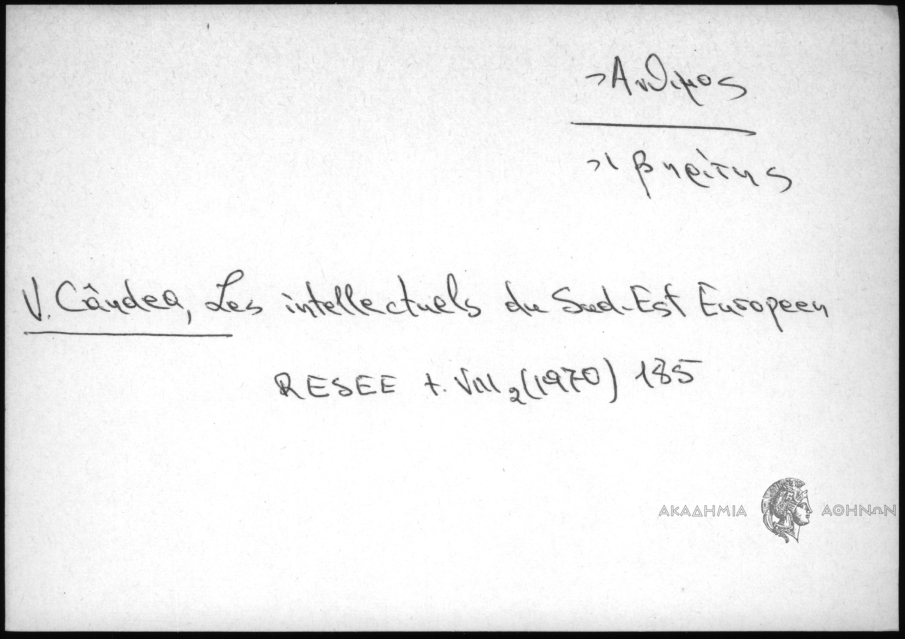 Ἄνθιμος
Ἰβηρίτης
V. Cândea, Les intellectuels du Sud-Est Européen
RESEE t. VIII 2 (1970) 185
ΑΚΑΔΗΜΙΑ ΑΘΗΝΩΝ